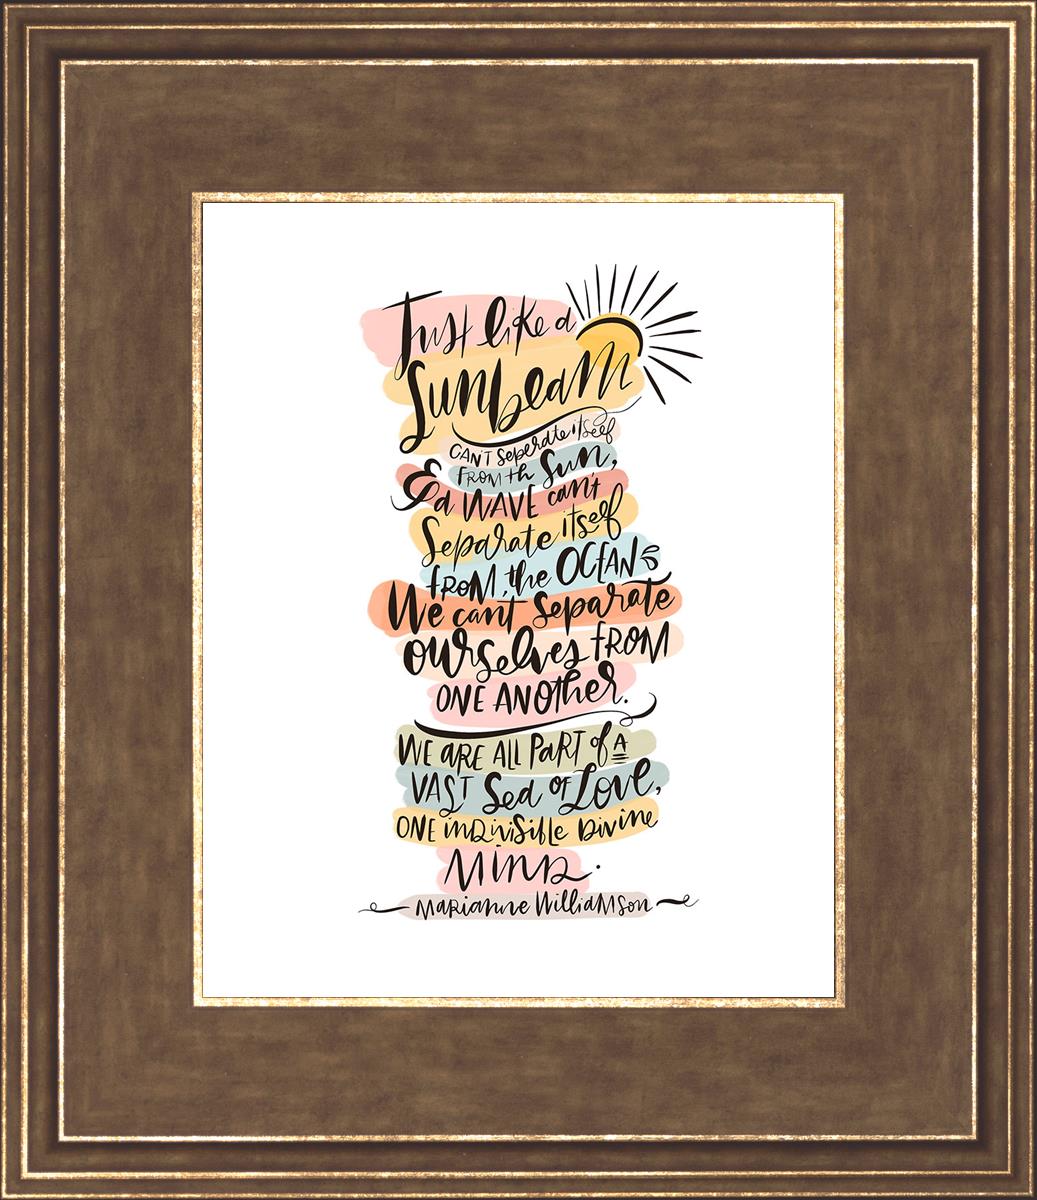 Just like a
Sunbeam
CAN'T Seperate itself
FROM th Sun,
& a WAVE can't
Separate itself
FROM the OCEAN
We can't Separate
ourselves FROM
ONE ANOther.
WE ARE ALL PART of A
VAST Sea OF LOVE,
ONE indivisible Divine
Mind.
Marianne Williamson